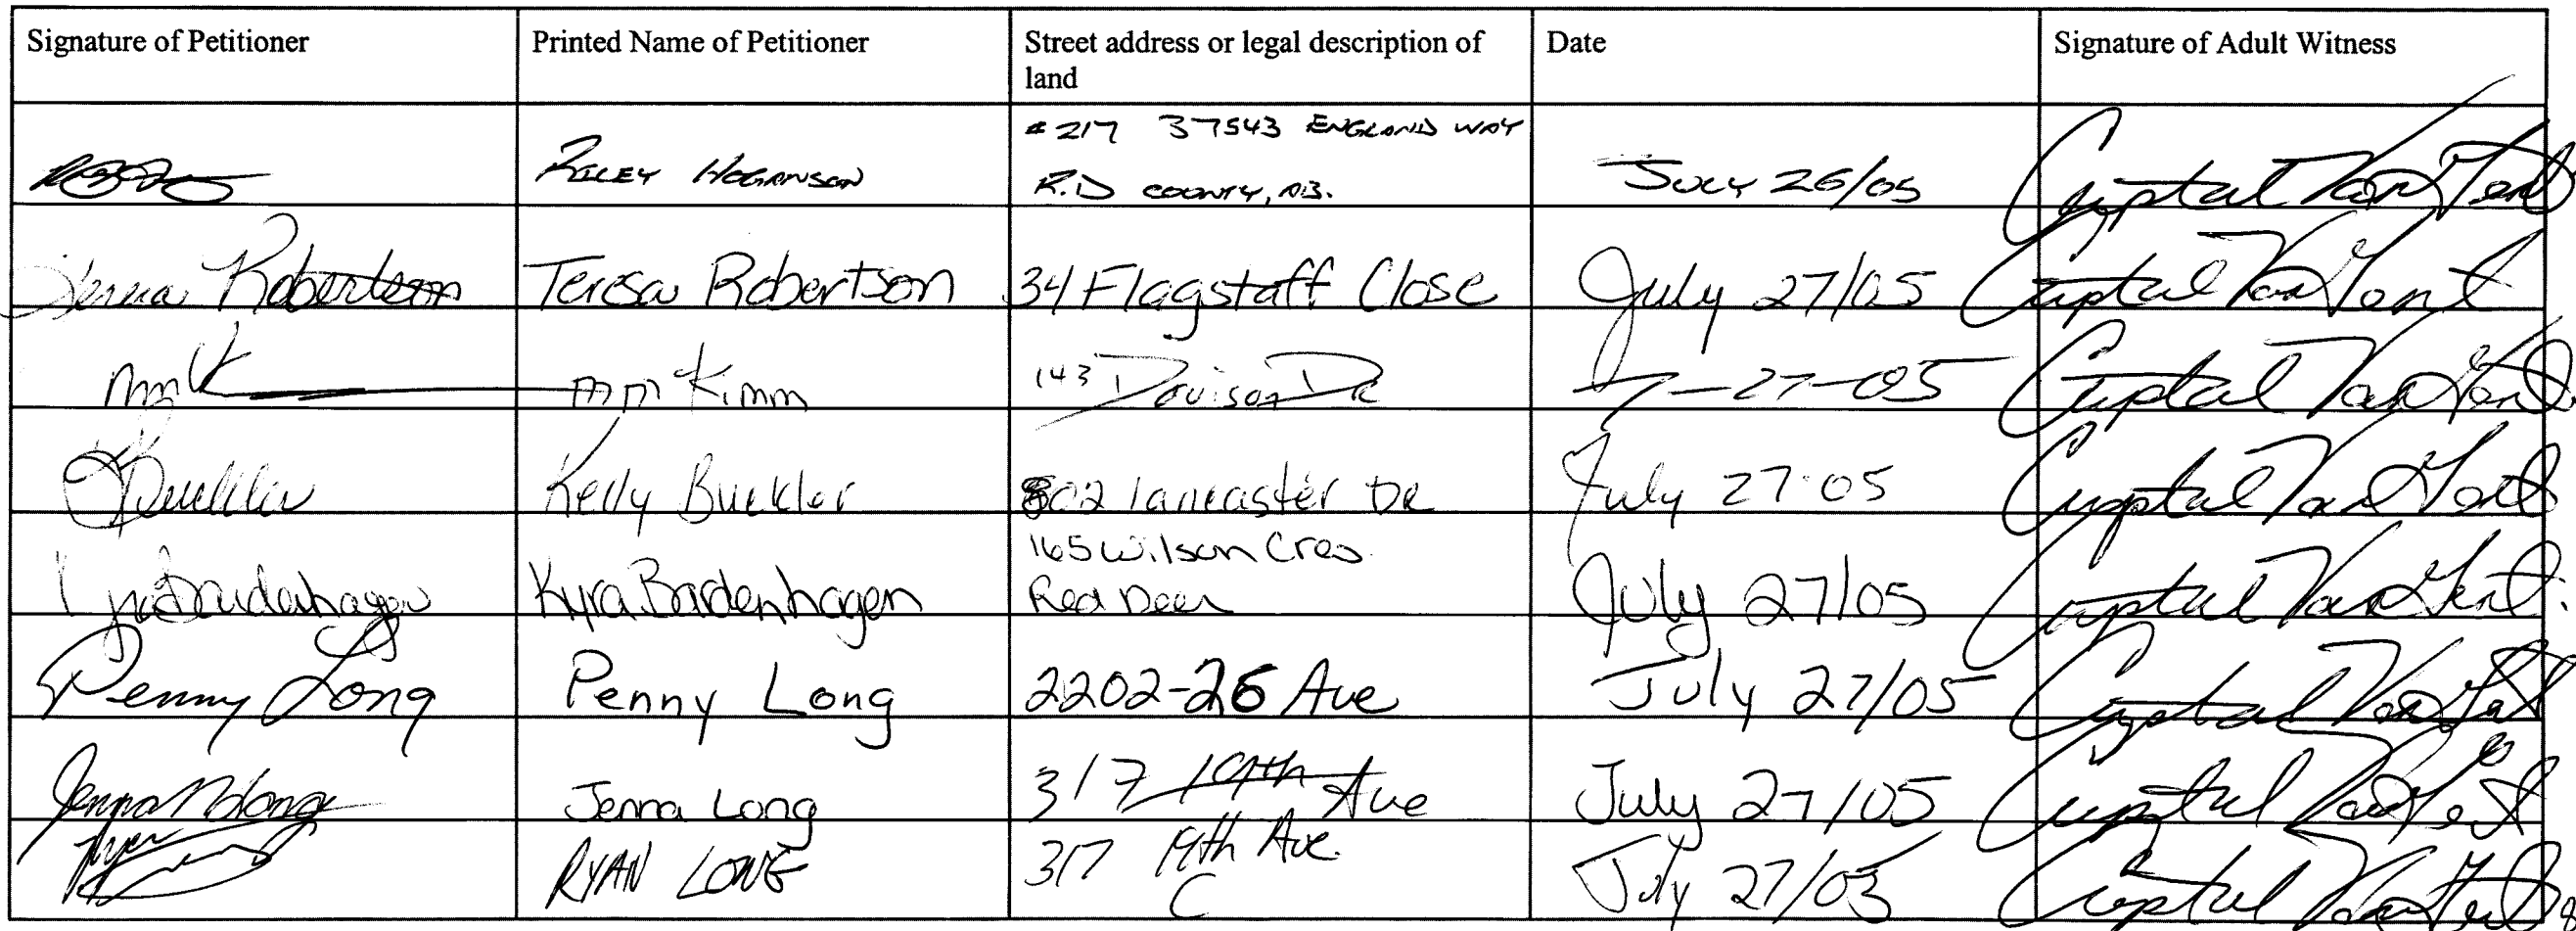 Signature of Petitioner Printed Name of Petitioner Street address or legal description of Date Signature of Adult Witness
land
#217 37543 ENGLAND WAY
RILEY HOGANSON R.D COUNTY, AB. JULY 26/05 Crystal VanGent
Teresa Robertson Teresa Robertson 34 Flagstaff Close July 27/05 Crystal VanGent
mm K mm Kimm 143 Davison Dr 7-27-05 Crystal VanGent
KBuckler Kelly Buckler 802 lancaster DR July 27 05 Crystal VanGent
165 Wilson Cres.
Kyra Bardenhagen Kyra Bardenhagen Red Deer July 27/05 Crystal VanGent
Penny Long Penny Long 2202-26 Ave July 27/05 Crystal VanGent
Jenna Long Jenna Long 317 19th Ave July 27/05 Crystal VanGent
Ryan RYAN LONG 317 19th Ave. July 27/05 Crystal VanGent
C